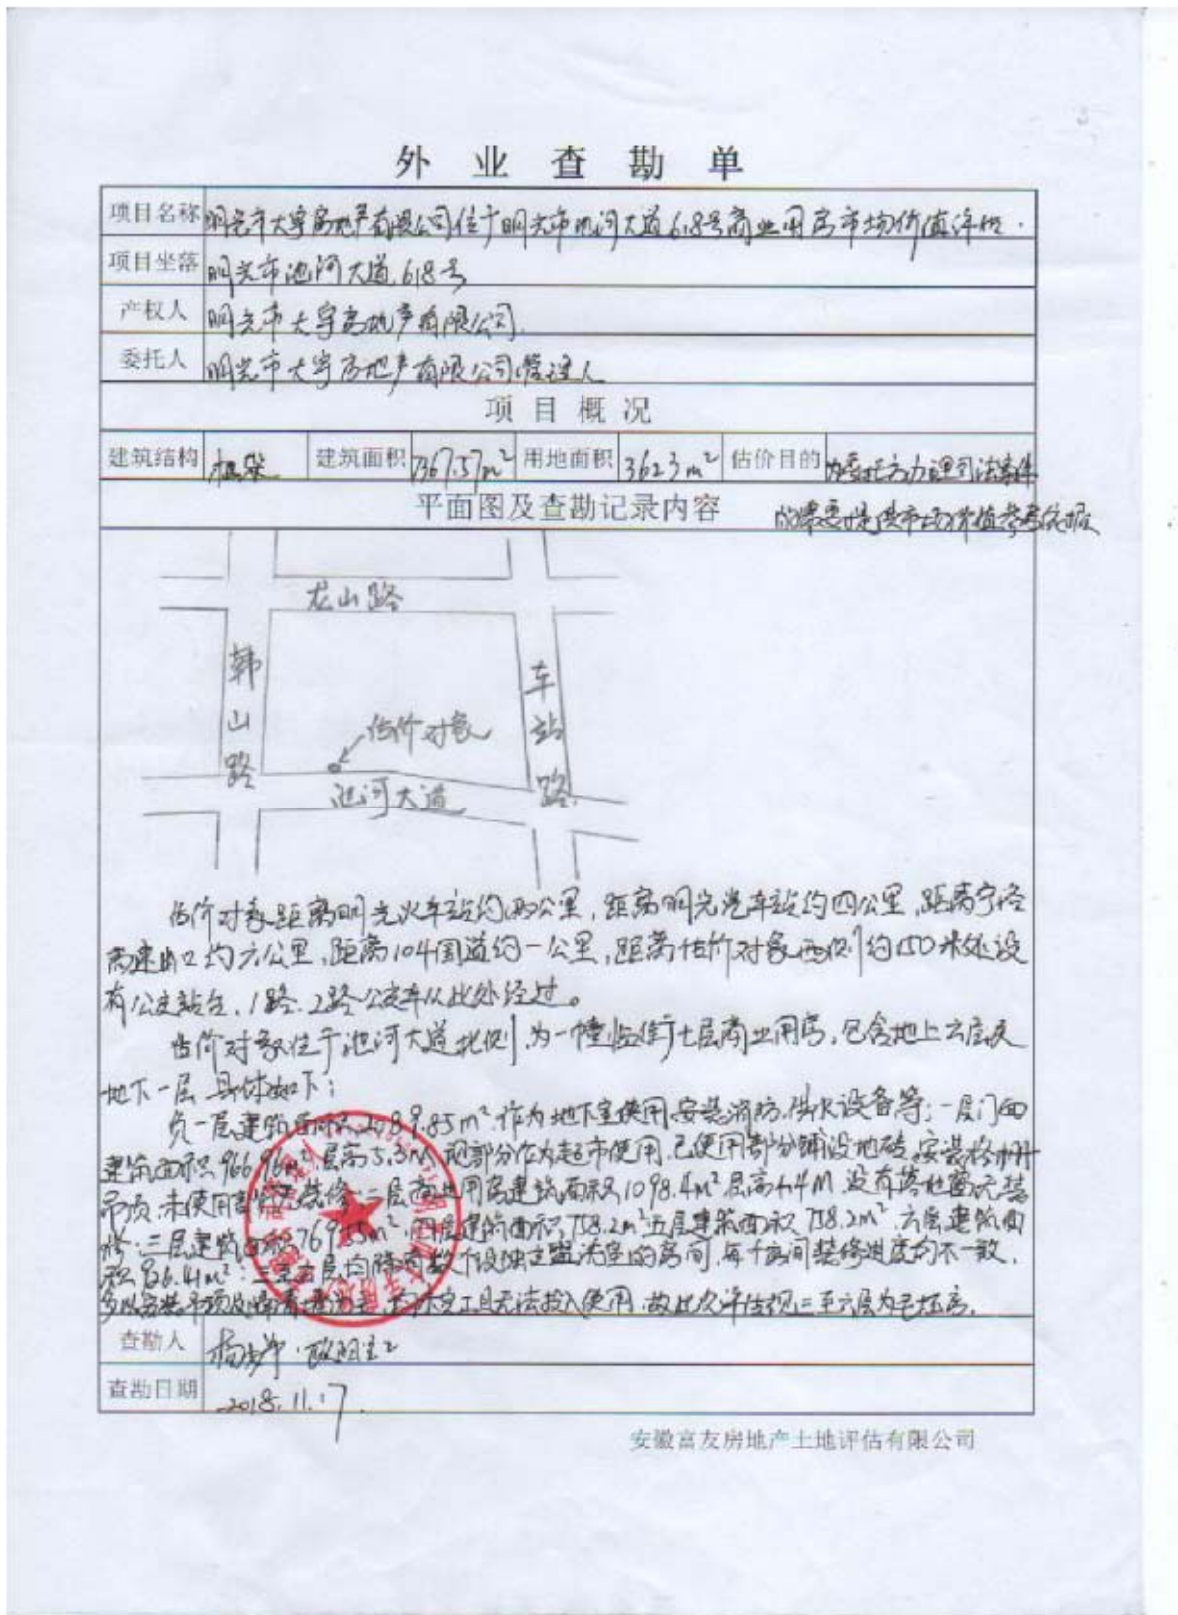 外业查勘单
项目名称 明光市大宇房地产有限公司位于明光市池河大道618号商业用房市场价值评估.
项目坐落 明光市池河大道618号
产权人 明光市大宇房地产有限公司.
委托人 明光市大宇房地产有限公司管理人
项目概况
建筑结构 框架 建筑面积 7367.57m² 用地面积 3623m² 估价目的 为委托方办理司法案件
平面图及查勘记录内容 的需要提供市场价值参考依据
龙山路
韩山路
车站路
估价对象
池河大道
估价对象距离明光火车站约两公里,距离明光汽车站约四公里,距离宁洛
高速出口约六公里,距离104国道约一公里,距离估价对象西侧约150米处设
有公交站台,1路、2路公交车从此处经过。
估价对象位于池河大道北侧,为一幢临街七层商业用房,包含地上六层及
地下一层 具体如下:
负一层建筑面积2189.85m²,作为地下室使用,安装消防、供水设备等;一层门面
建筑面积966.96m²,层高5.3M,现部分作为超市使用,已使用部分铺设地砖,安装格栅
吊顶,未使用部分无装修;二层商业用房建筑面积1098.4m²层高4.4M,没有落地窗无装
修;三层建筑面积769.55m²,四层建筑面积758.2m²五层建筑面积758.2m²,六层建筑面
积826.41m²;三至六层均隔有数个设独立盥洗室的房间,每个房间装修进度均不一致,
多以安装吊顶及 均未完工且无法投入使用,故此次评估视三至六层为毛坯房.
查勘人
查勘日期 2018.11.17.
安徽富友房地产土地评估有限公司